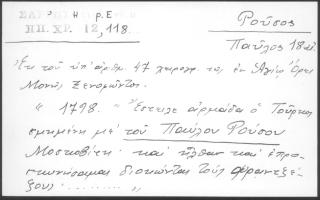 Ρούσος
ΠΠ. ΧΡ. 12, 118.
Παῦλος 18
Ἐκ τοῦ ὑπ' ἀριθμ. 47 χειρογρ. τῆς ἐν Ἁγίῳ Ὄρει
Μονῆς Ξενοφῶντος.
" 1798. " Ἔστειλε ἀρμάδα ὁ Τοῦρκος
σμιμένη μὲ τοῦ Παύλου Ρούσου
Μοσκοβίτη καὶ ἦλθαν καὶ ἐπρο-
σκυνήσαμαι διοκῶντας τοὺς Φραντζέ-
ζους ......... "